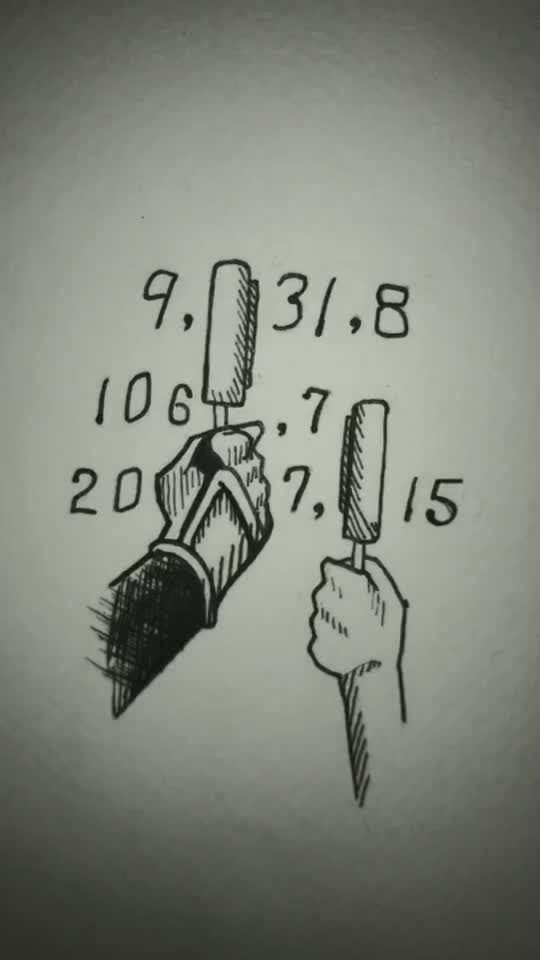 9, 31,8
106 ,7
207, 15